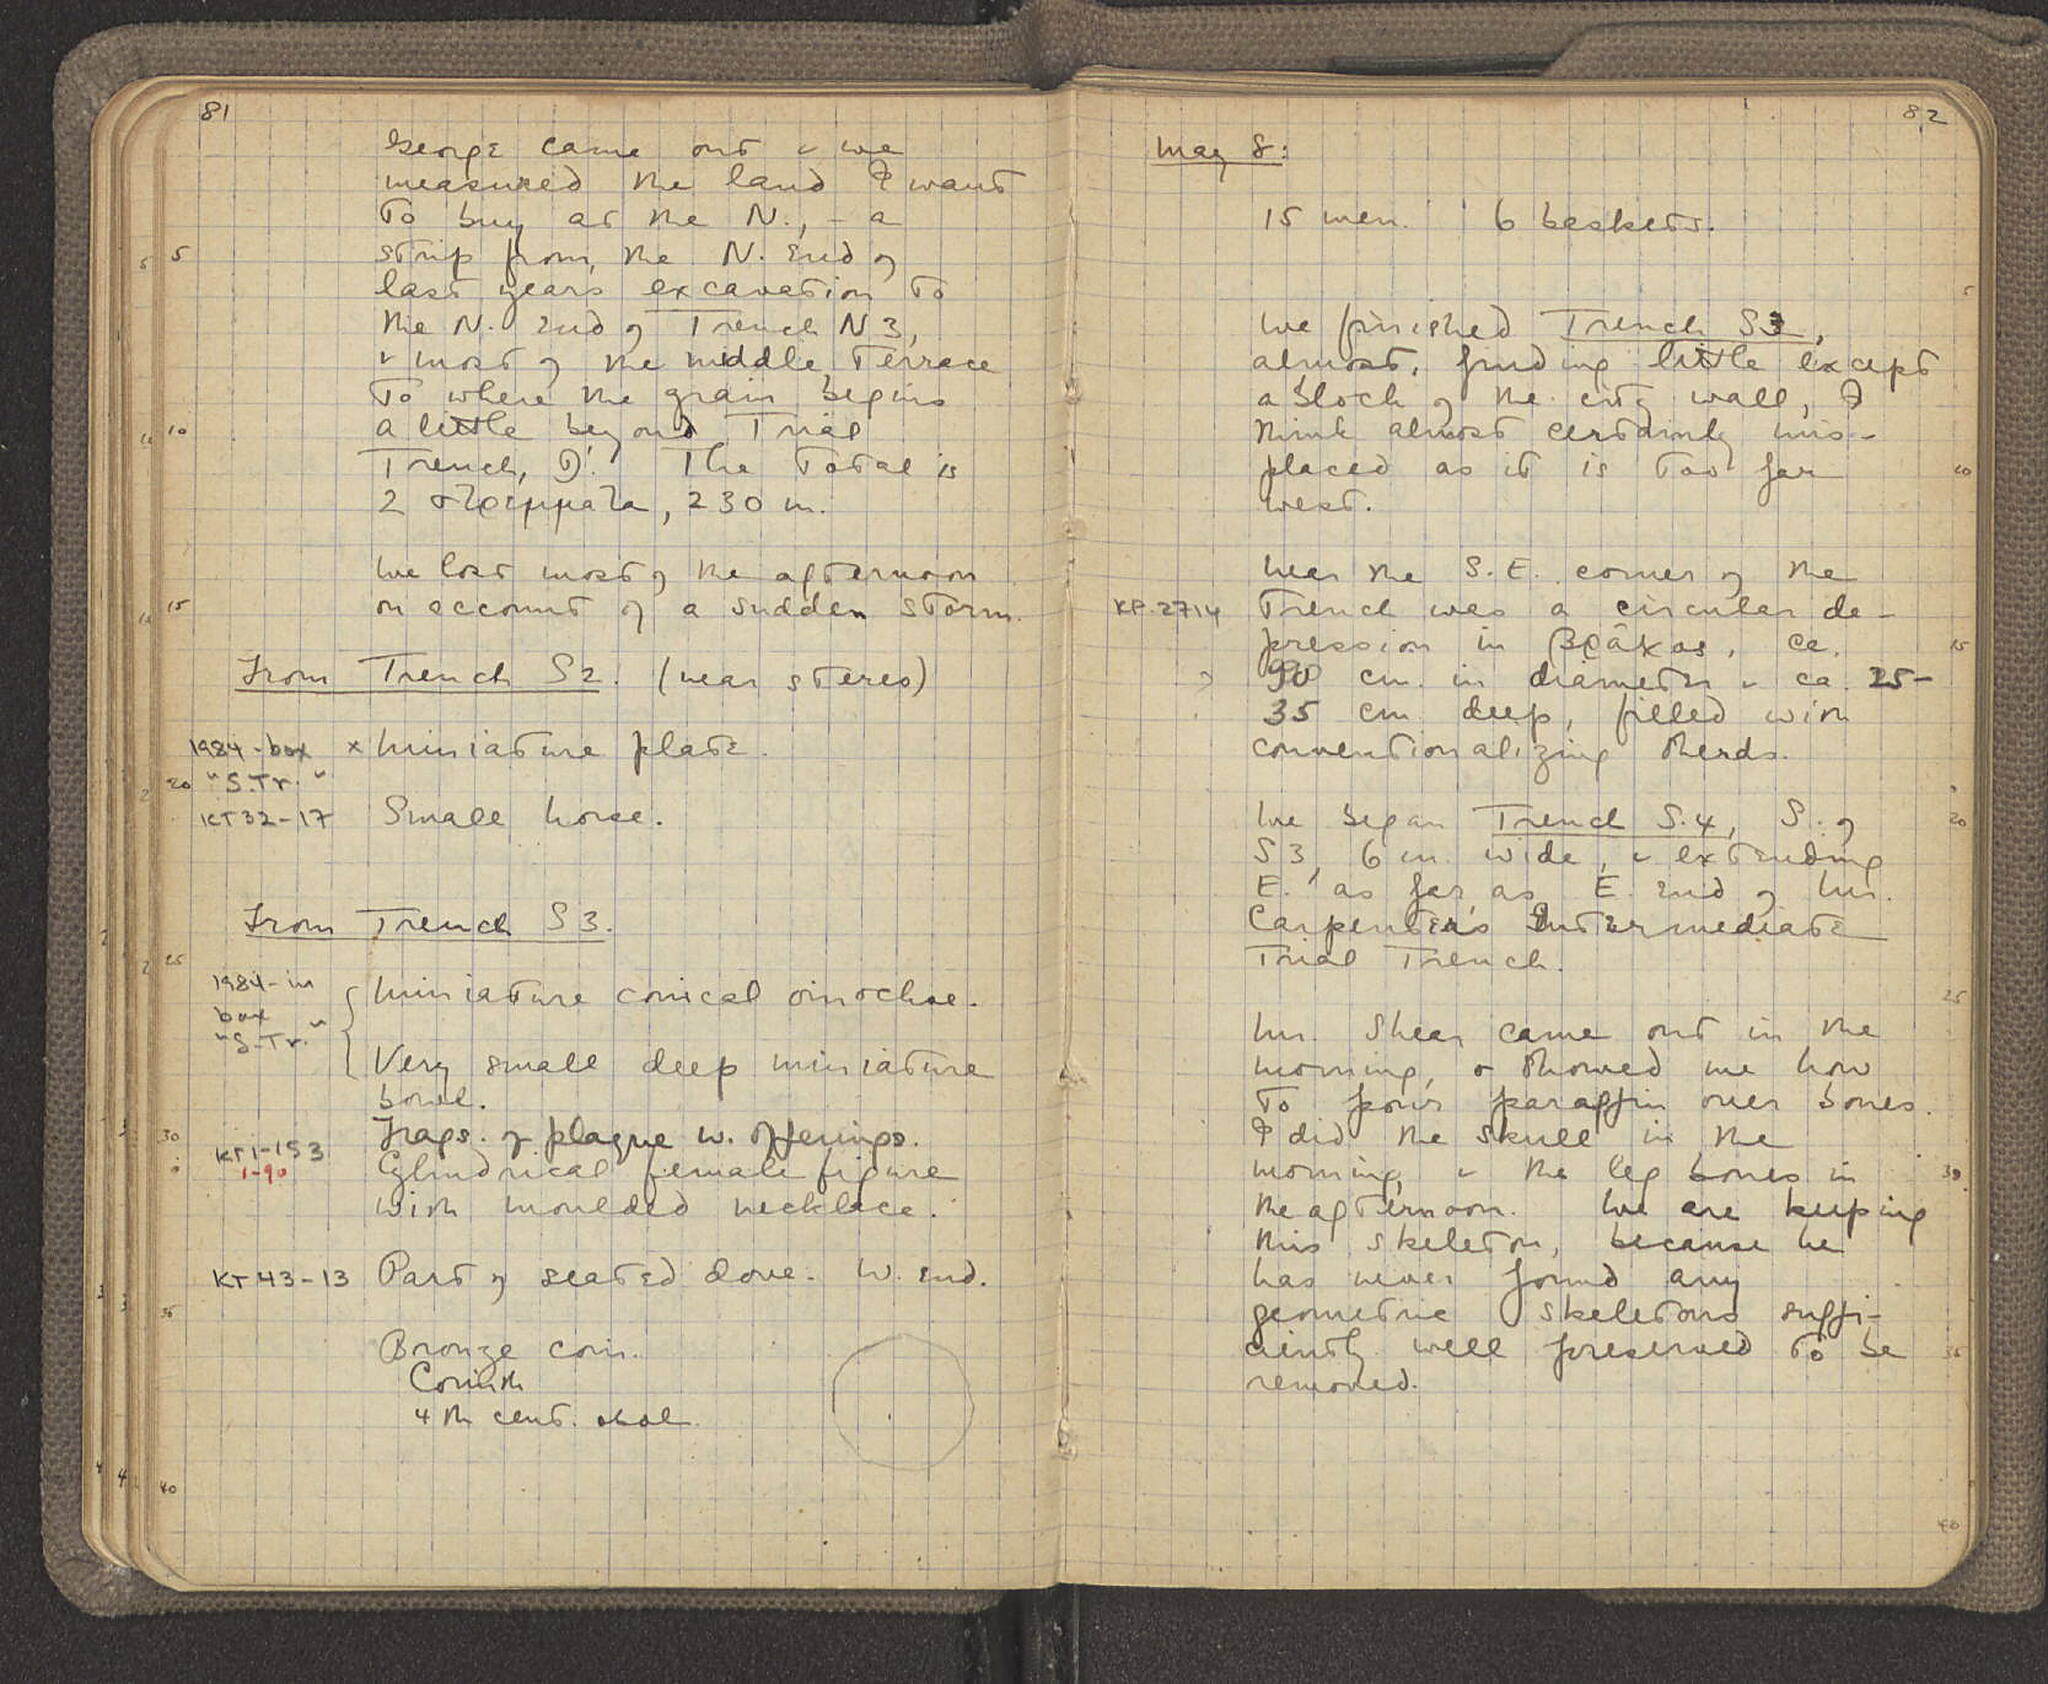 81
George came out & we
measured the land I want
to buy at the N., - a
strip from the N. end of
last years excavation to
the N. end of Trench N3,
& most of the middle terrace
to where the grain begins
a little beyond Trial
Trench, D'. The total is
2 στρέμματα, 230 m.
We lost most of the afternoon
on account of a sudden storm.
From Trench S2. (near stereo)
1984-box x Miniature plate.
"S.Tr."
KT32-17 Small horse.
From Trench S3.
1984-in
box
"S.Tr."
Miniature conical oinochoe.
Very small deep miniature
bowl.
Frags. of plaque w. offerings.
KT1-153
1-90
Cylindrical female figure
with moulded necklace.
KT43-13 Part of seated dove. W. end.
Bronze coin.
Corinth
4th cent. obol
5
10
15
20
25
30
35
40
82
May 8:
15 men. 6 baskets.
We finished Trench S3,
almost, finding little except
a block of the city wall, I
think almost certainly mis-
placed as it is too far
west.
Near the S.E. corner of the
KP.2714 Trench was a circular de-
pression in βράχος, ca.
90 cm. in diameter & ca. 25-
35 cm deep, filled with
conventionalizing sherds.
We began Trench S.4, S. of
S3, 6 m. wide, & extending
E. as far as E. end of Mr.
Carpenter's Intermediate
Trial Trench.
Mr. Shear came out in the
morning, & showed me how
to pour paraffin over bones.
I did the skull in the
morning, & the leg bones in
the afternoon. We are keeping
this skeleton, because he
has never found any
geometric skeletons suffi-
ciently well preserved to be
removed.
5
10
15
20
25
30
35
40